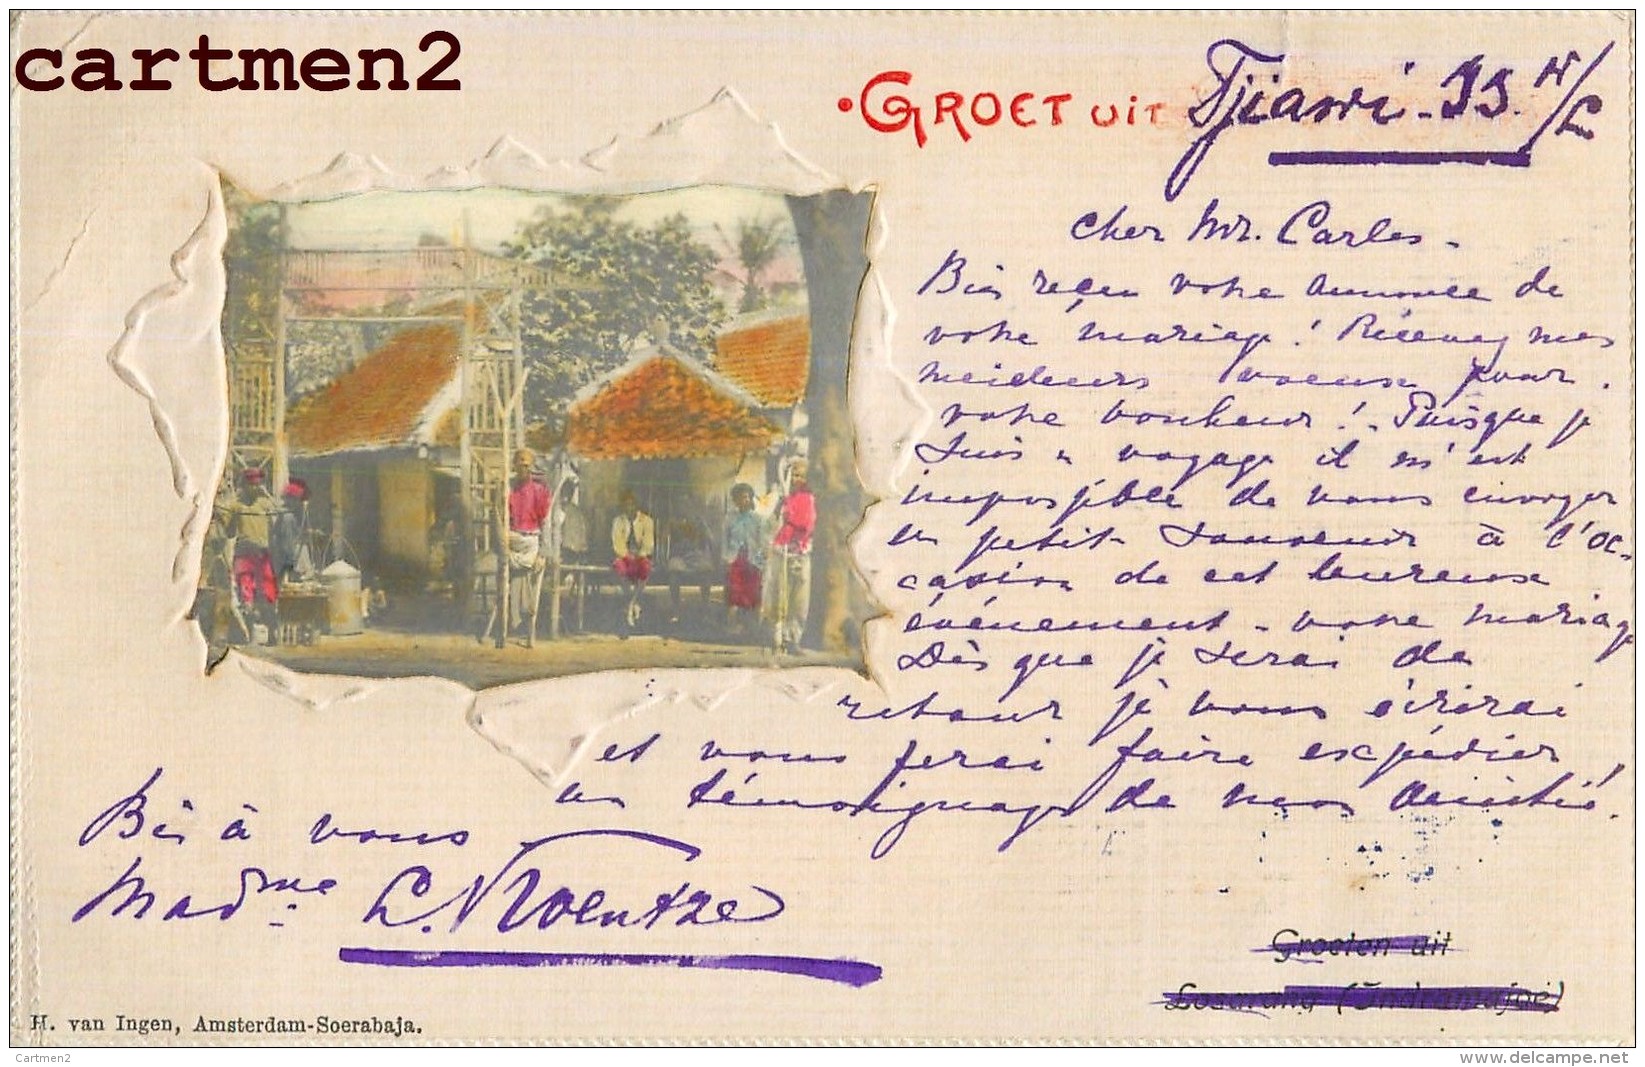 cartmen2
GROET uit Tjiawi
cher Mr. Carles.
Bien reçu votre annonce de
votre mariage! Recevez mes
meilleurs voeux pour
votre bonheur! Puisque je
suis en voyage il m'est
impossible de vous envoyer
un petit souvenir à l'oc-
casion de cet heureux
événement - votre mariage
Dès que je serai de
retour je vous écrirai
et vous ferai faire expédier
un témoignage de mon amitié.
Bien à vous
Madme L.
Groeten uit
Losarang (Indramajoe)
H. van Ingen, Amsterdam-Soerabaja.
Cartmen2
www.delcampe.net